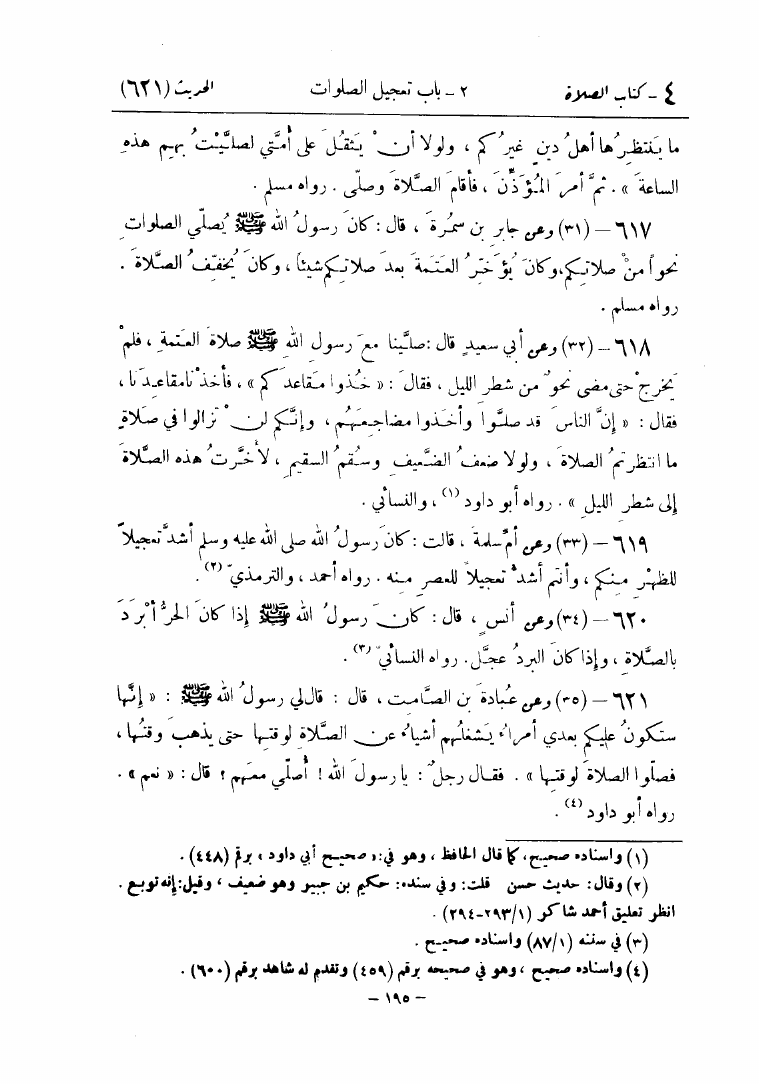 ٤ ـ كتاب الصلاة ٢ ـ باب تعجيل الصلوات الحديث (٦٢١)
ما يَنتظِرُها أهلُ دينٍ غيرُكم ، ولولا أنْ يَثقُلَ على أُمَّتي لصلَّيْتُ بهِم هذهِ
الساعةَ » . ثمَّ أمرَ المُؤَذِّنَ ، فأقامَ الصَّلاةَ وصلّى . رواه مسلم .
٦١٧ – (٣١) وعن جابرِ بنِ سمُرةَ ، قال : كانَ رسولُ الله ﷺ يُصلّي الصلواتِ
نحواً منْ صلاتِكم، وكانَ يُؤخِّرُ العَتَمةَ بعدَ صلاتِكم شيئاً ، وكانَ يُخفِّفُ الصَّلاةَ .
رواه مسلم .
٦١٨ – (٣٢) وعن أبي سعيدٍ قال : صلَّينا معَ رسولِ الله ﷺ صلاةَ العَتمةِ ، فلمْ
يَخرجْ حتى مضى نحوٌ من شطرِ الليل ، فقال : « خُذوا مَقاعدَكم » ، فأخذْنا مقاعِدَنا ،
فقال : « إنَّ الناسَ قد صلَّوا وأخَذوا مضاجعَهُم ، وإنَّكم لنْ تزالوا في صَلاةٍ
ما انتظرتمُ الصلاةَ ، ولولا ضَعفُ الضَّعيفِ وسُقمُ السقيمِ ، لأخَّرتُ هذه الصَّلاةَ
إلى شطرِ الليلِ » . رواه أبو داود (١) ، والنسائي .
٦١٩ – (٣٣) وعن أمِّ سلمةَ ، قالت : كانَ رسولُ الله صلى الله عليه وسلم أشدَّ تعجيلاً
للظهْرِ مِنكم ، وأنتم أشدُّ تعجيلاً للعصرِ مِنه . رواه أحمد ، والترمذيّ (٢) .
٦٢٠ – (٣٤) وعن أنسٍ ، قال : كانَ رسولُ الله ﷺ إذا كانَ الحرُّ أبْرَدَ
بالصَّلاةِ ، وإذا كانَ البردُ عجَّل. رواه النسائيّ (٣) .
٦٢١ – (٣٥) وعن عُبادةَ بنِ الصَّامت ، قال : قال لي رسولُ الله ﷺ : « إنَّها
ستكونُ عليكم بعدي أمراءُ يَشغلُهم أشياءُ عن الصَّلاةِ لوقتِها حتى يذهبَ وقتُها ،
فصلّوا الصلاةَ لوقتِها » . فقال رجلٌ : يا رسولَ الله ! أُصلّي معَهم ؟ قال : « نعم » .
رواه أبو داود (٤) .
(١) واسناده صحيح، كما قال الحافظ ، وهو في: « صحيح أبي داود » برقم (٤٤٨) .
(٢) وقال: حديث حسن قلت: وفي سنده: حكيم بن جبير وهو ضعيف ، وقيل: إنه توبع .
انظر تعليق أحمد شاكر (١/ ٢٩٣-٢٩٤) .
(٣) في سننه (١/ ٨٧) واسناده صحيح .
(٤) واسناده صحيح ، وهو في صحيحه برقم (٤٥٩) وتقدم له شاهد برقم (٦٠٠) .
– ١٩٥ –